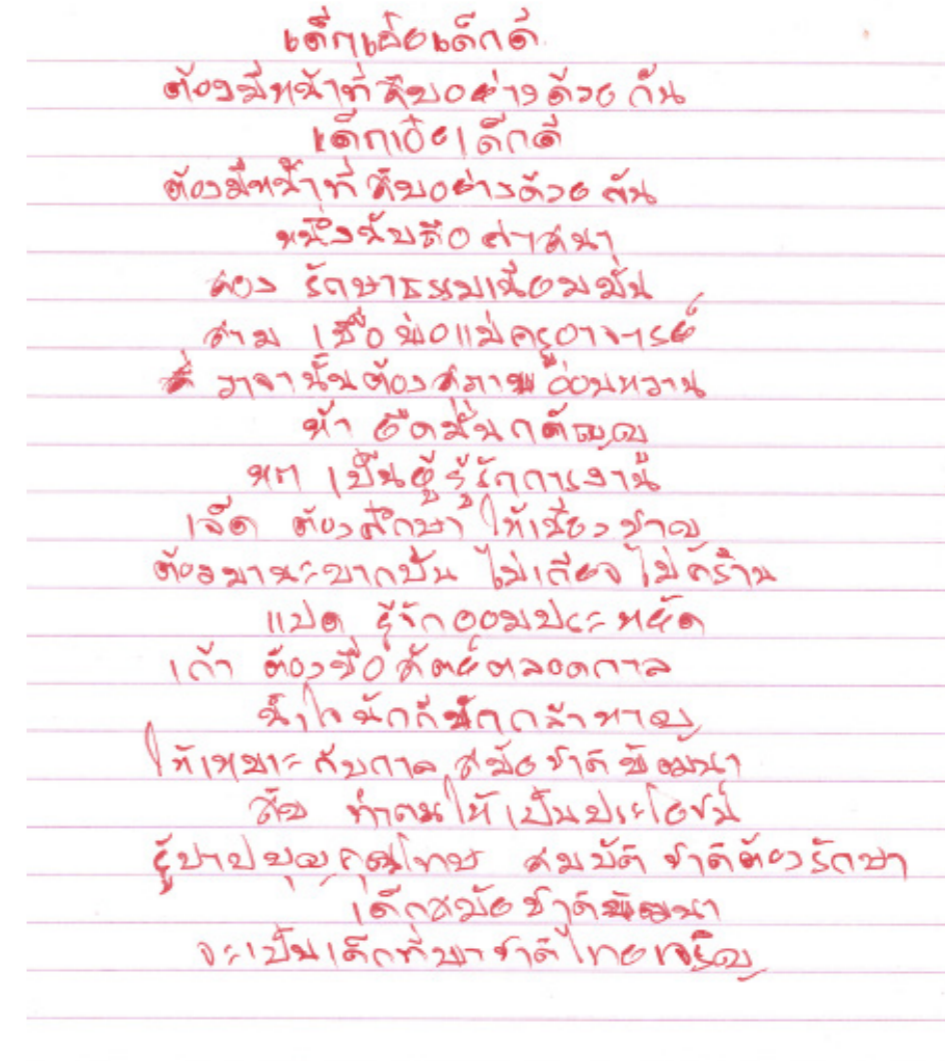 เด็กเอ๋ยเด็กดี
ต้องมีหน้าที่สิบอย่างด้วยกัน
เด็กเอ๋ยเด็กดี
ต้องมีหน้าที่สิบอย่างด้วยกัน
หนึ่งนับถือศาสนา
สอง รักษาธรรมเนียมมั่น
สาม เชื่อพ่อแม่ครูอาจารย์
สี่ วาจานั้นต้องสุภาพอ่อนหวาน
ห้า ยึดมั่นกตัญญู
หก เป็นผู้รู้รักการงาน
เจ็ด ต้องศึกษาให้เชี่ยวชาญ
ต้องมานะบากบั่น ไม่เกียจไม่คร้าน
แปด รู้จักออมประหยัด
เก้า ต้องซื่อสัตย์ตลอดกาล
น้ำใจนักกีฬากล้าหาญ
ให้เหมาะกับกาล สมัยชาติพัฒนา
สิบ ทำตนให้เป็นประโยชน์
รู้บาปบุญคุณโทษ สมบัติชาติต้องรักษา
เด็กสมัยชาติพัฒนา
จะเป็นเด็กที่พาชาติไทยเจริญ